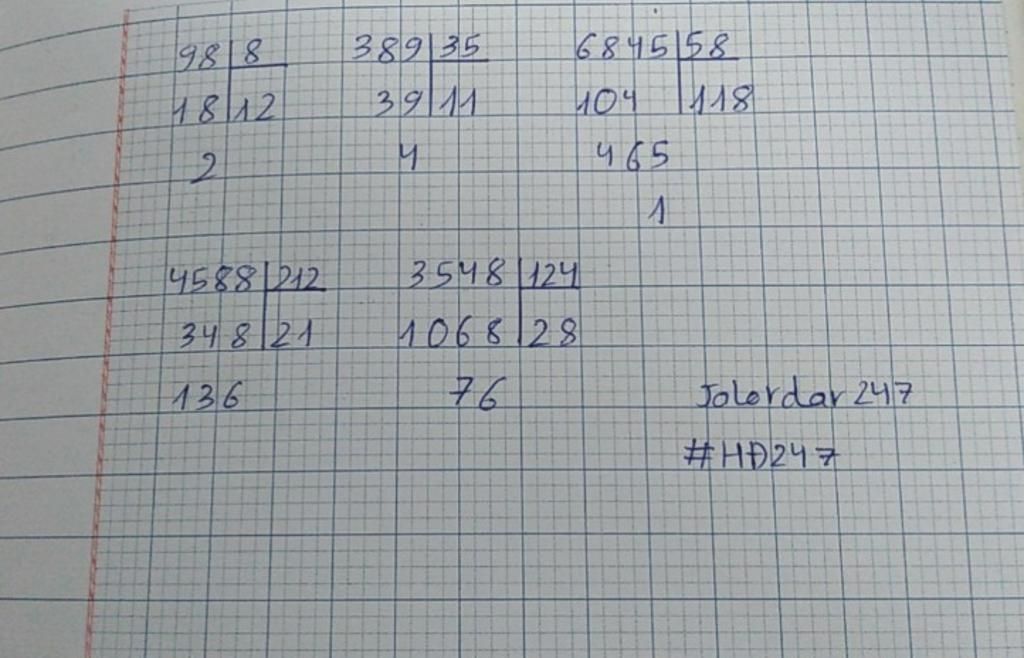 98 8 389 35 6845 58
18 12 39 11 104 118
2 4 465
1
4588 212 3548 124
348 21 1068 28
136 76 Jolerdar 247
#HĐ247